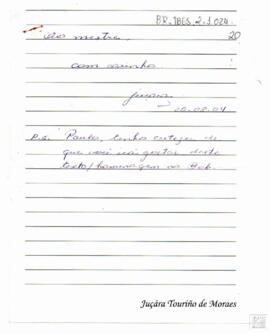 BR.IBES.2.1.024
20
Ao mestre
com carinho
Juçara
20.08.04
P.S. Paulo, tenho certeza de
que você vai gostar deste
texto/homenagem ao Bob.
Juçára Touriño de Moraes